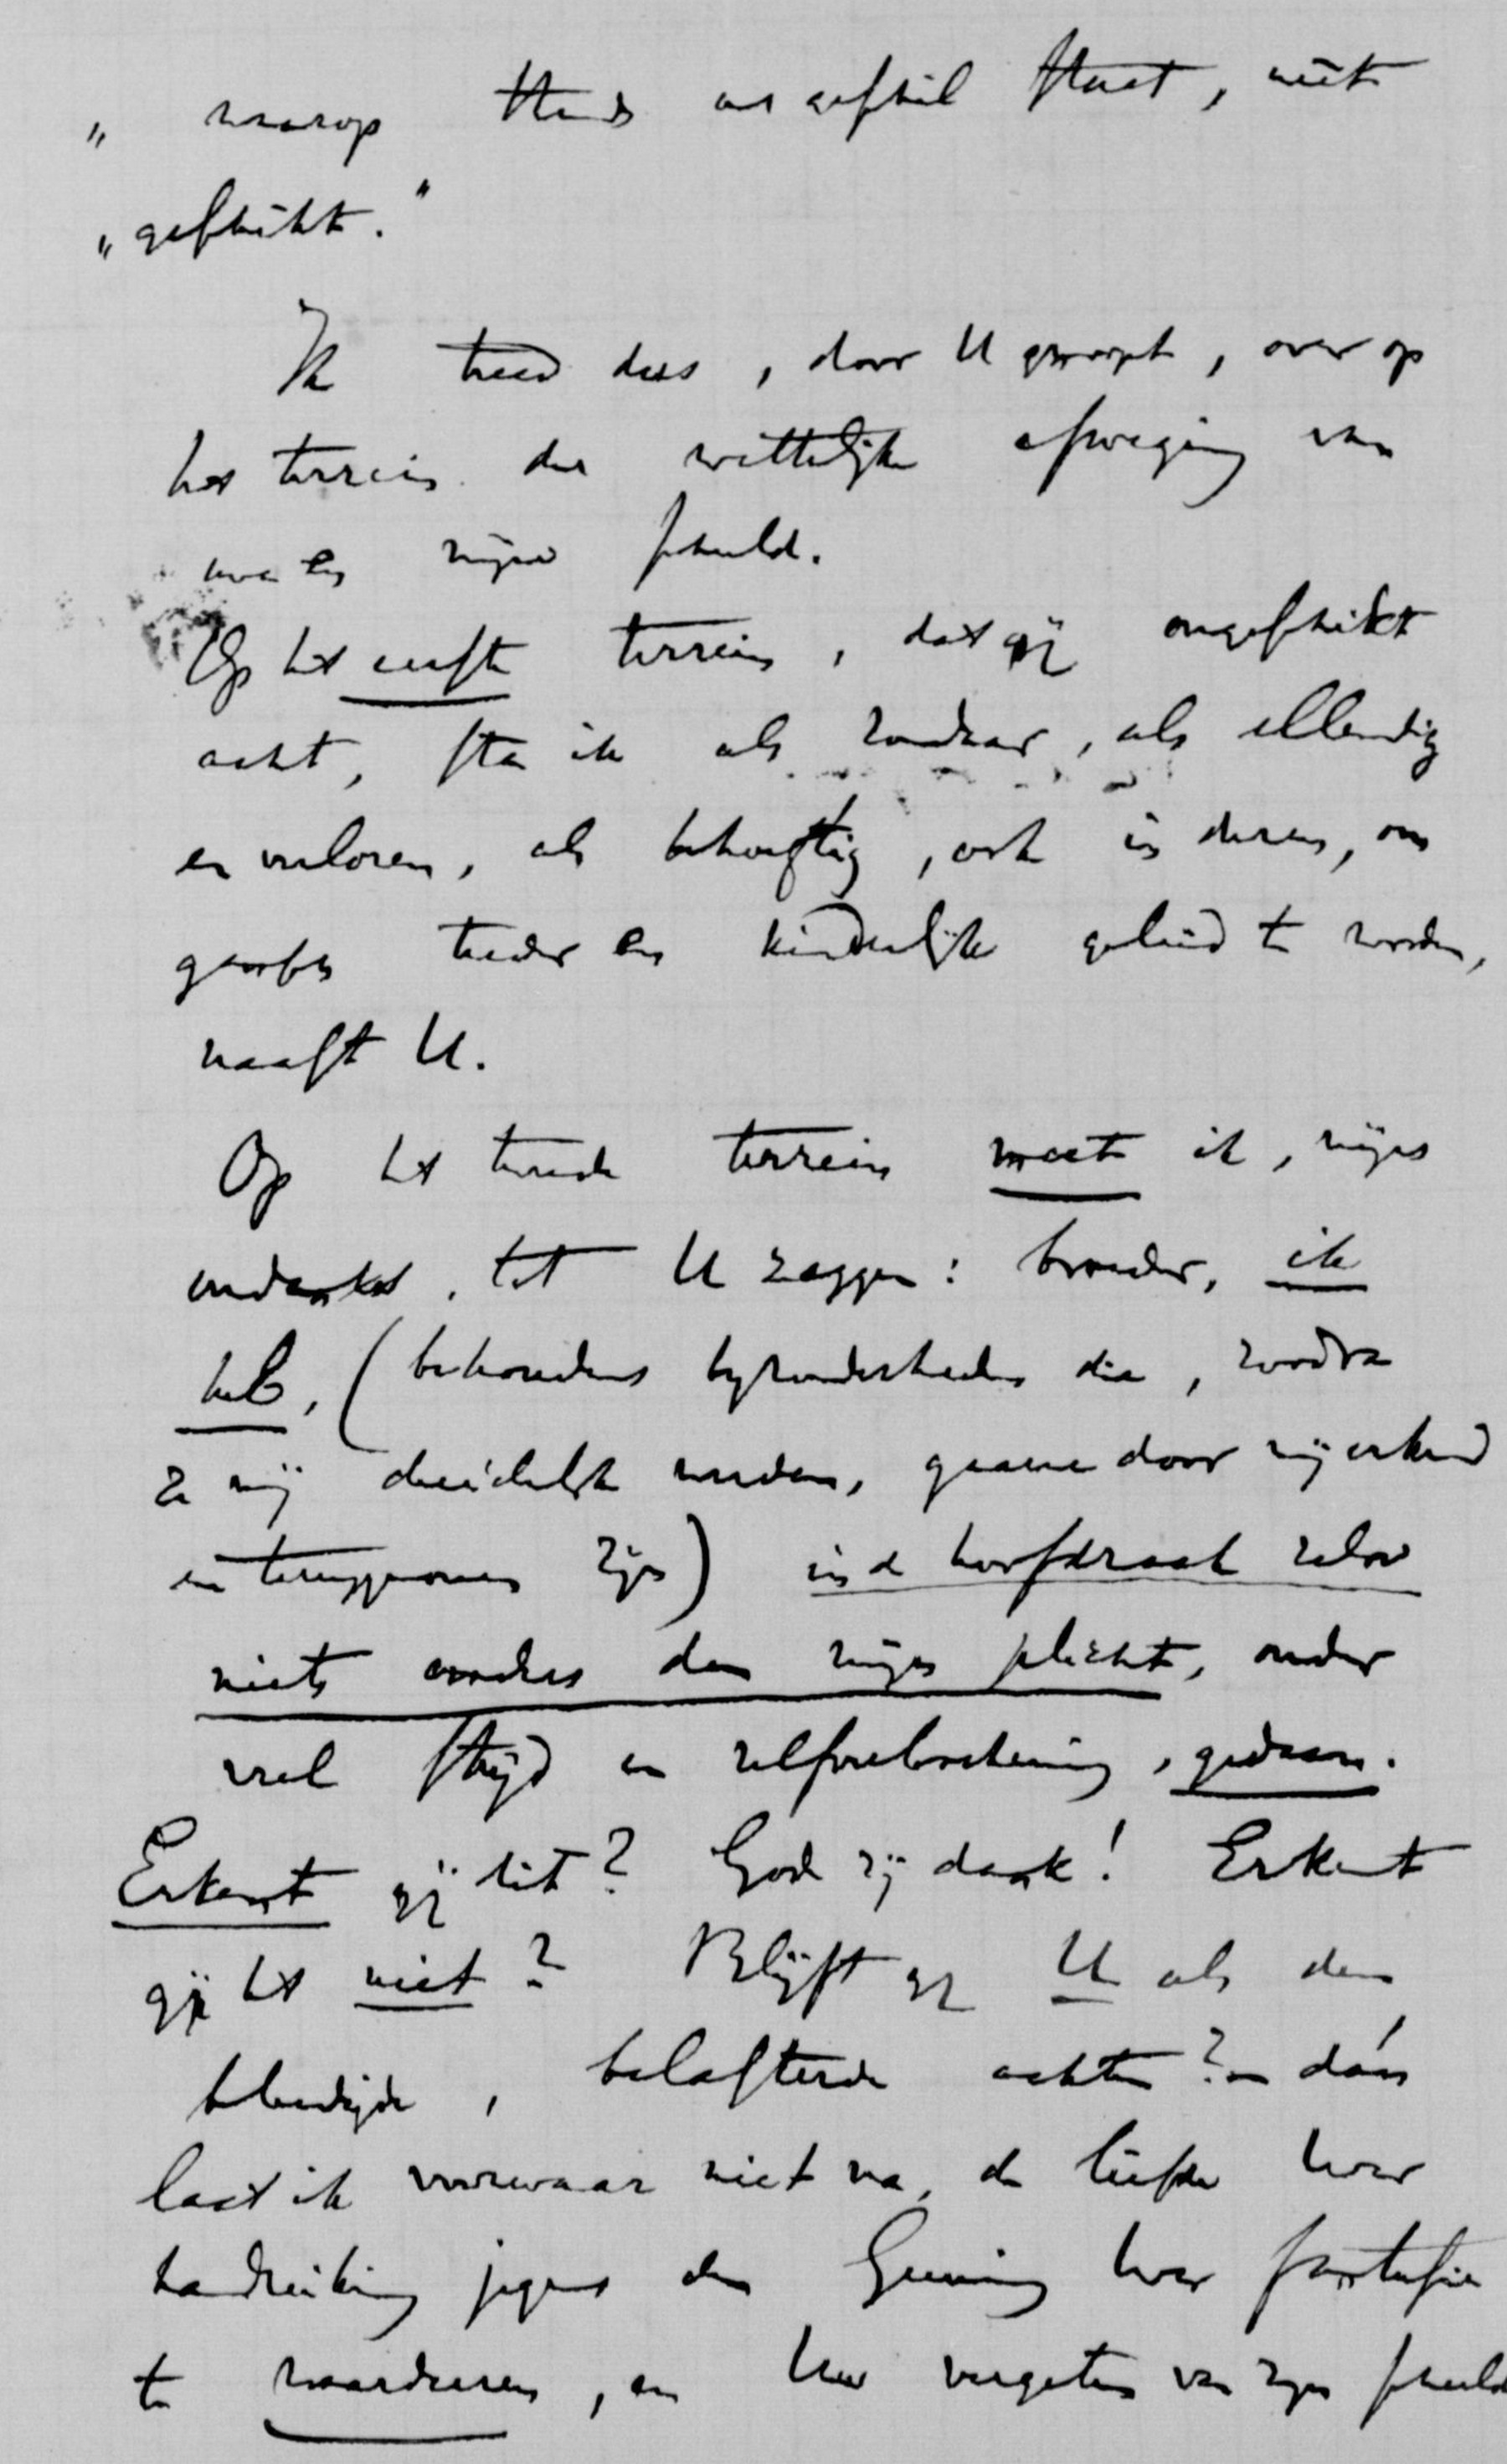 „ waarop thans ons geschil staat, niet
„ geschikt."
Ik treed dus, door U genoopt, over op
het terrein der wettelijke afweging van
uwe en mijne schuld.
Op het eerste terrein, dat gij ongeschikt
acht, sta ik als zondaar, als ellendig
en verloren, als behoeftig, ook in dezen, om
teeder en kinderlijk geleid te worden,
naast U.
Op het tweede terrein moet ik, mijns
ondanks, tot U zeggen: broeder, ik
heb, (behoudens byzonderheden die, zoodra
ze mij duidelijk worden, gaarne door mij erkend
en teruggenomen zijn) in de hoofdzaak zelve
niets anders dan mijn plicht, onder
veel strijd en zelfverloochening, gedaan.
Erkent gij dit? God zij dank! Erkent
gij het niet? Blijft gij U als den
beleedigde, belasterde achten? – dán
laat ik voorwaar niet na, de liefde uwer
handreiking jegens den Gunning uwer fantasie
te waardeeren, en Uw vergeten van zijn schuld